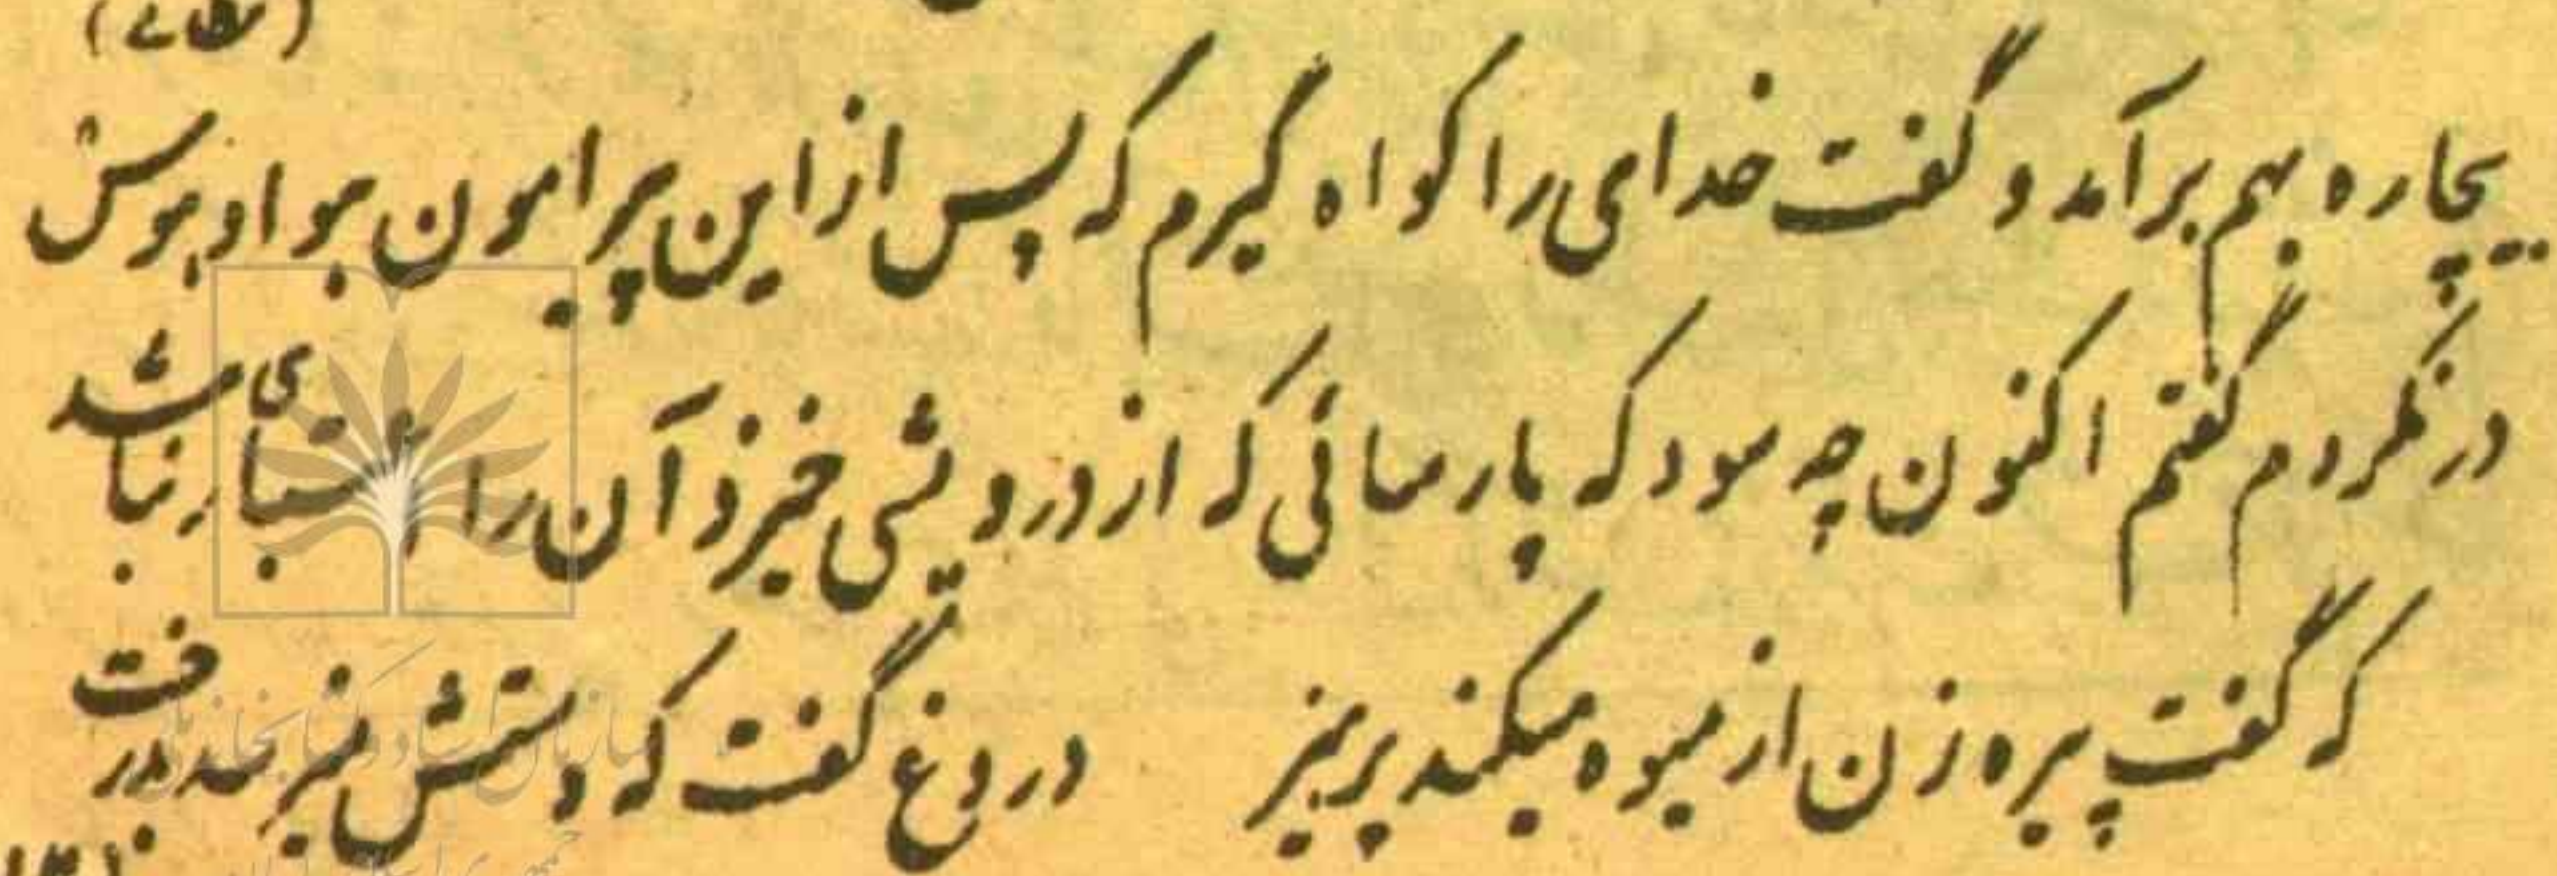 (عطائے)
بیچاره بهم برآمد و گفت خدای را گواه گیرم که پس از این پیرامون هوا و هوس
در نگردم گفتم اکنون چه سود که پارسائی که از درویشی خیزد آن را اعتباری نباشد
که گفت پیره زن از میوه میکند پرهیز دروغ گفت که دستش نمیرسد بدرخت